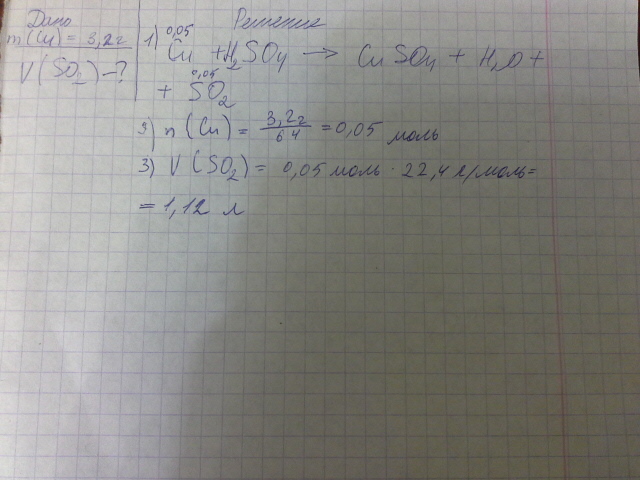 Дано
m(Cu) = 3,2г
V(SO₂) – ?
Решение
0,05
1) Cu + H₂SO₄ → CuSO₄ + H₂O +
0,05
+ SO₂
2) n(Cu) = 3,2г/64 = 0,05 моль
3) V(SO₂) = 0,05 моль · 22,4 л/моль =
= 1,12 л